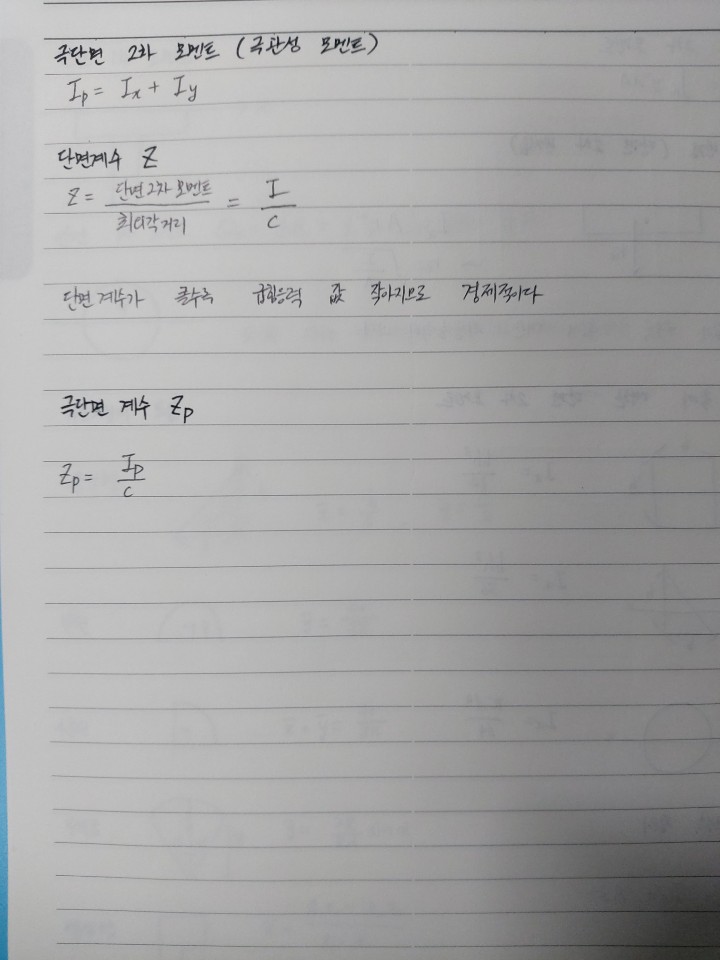 극단면 2차 모멘트 (극관성 모멘트)
Ip = Ix + Iy
단면계수 Z
Z = 단면2차 모멘트 / 최대각거리 = I / C
단면계수가 클수록 굽힘응력 값 작아지므로 경제적이다
극단면 계수 Zp
Zp = Ip / C